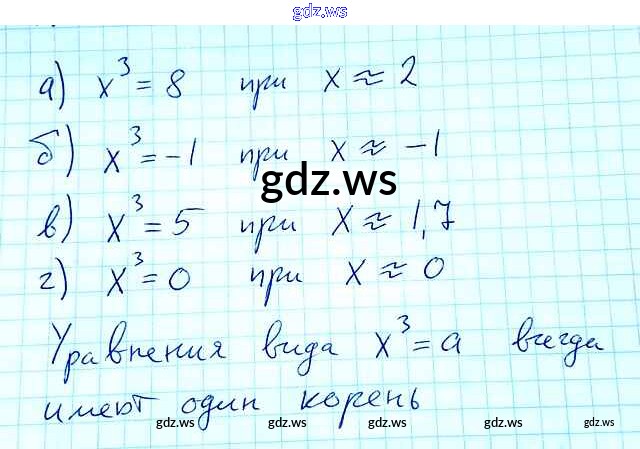 gdz.ws
а) x³ = 8 при x ≈ 2
б) x³ = -1 при x ≈ -1
gdz.ws
в) x³ = 5 при x ≈ 1,7
г) x³ = 0 при x ≈ 0
Уравнения вида x³ = a всегда
имеют один корень
gdz.ws gdz.ws gdz.ws gdz.ws gdz.ws